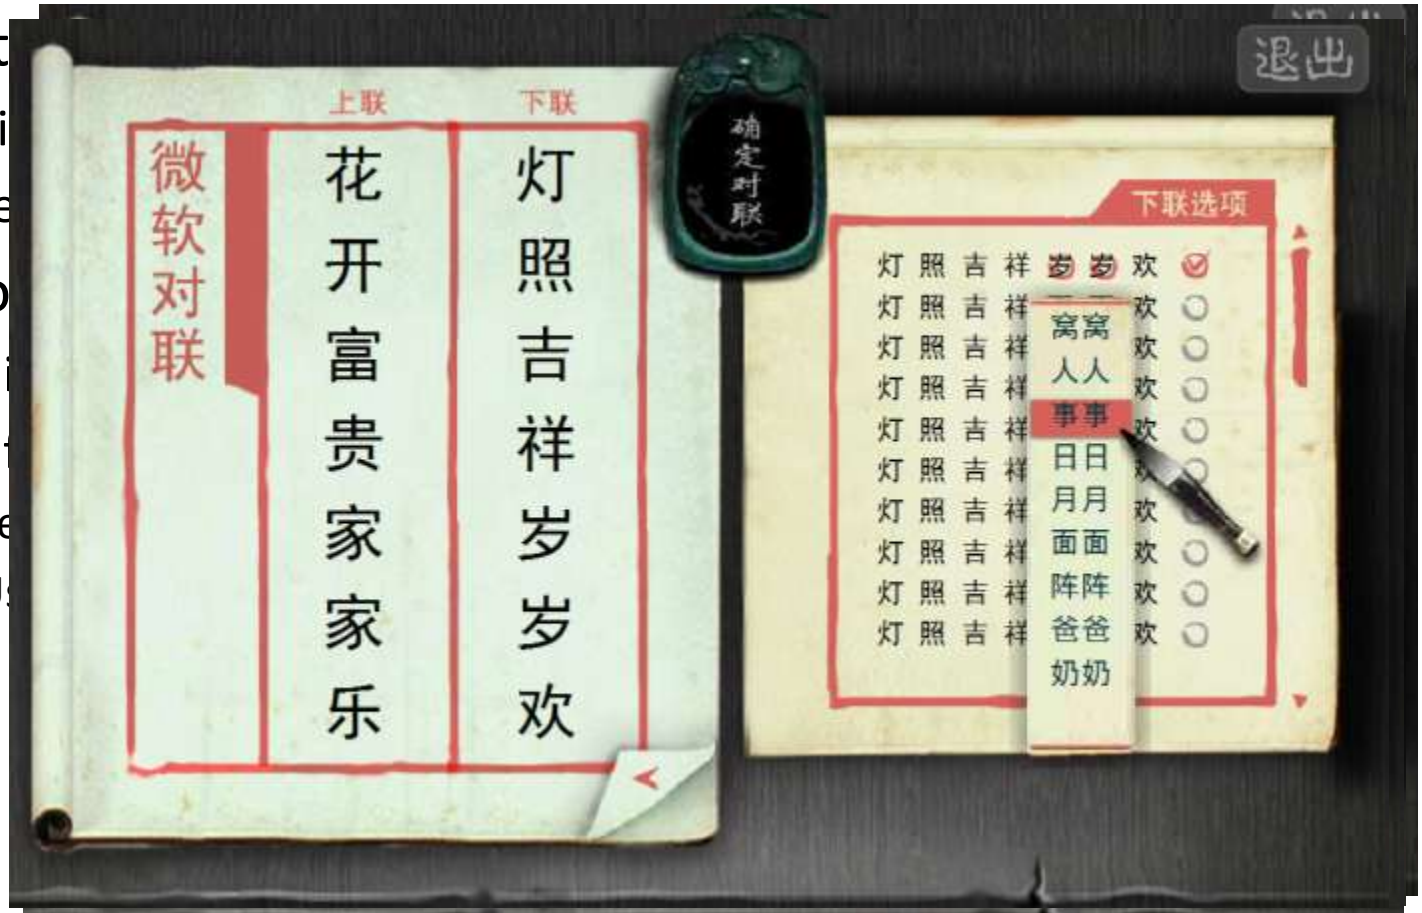 退出
上联
下联
微软对联
花开富贵家家乐
灯照吉祥岁岁欢
确定对联
下联选项
灯照吉祥岁岁欢
灯照吉祥 欢
灯照吉祥 欢
灯照吉祥 欢
灯照吉祥 欢
灯照吉祥
灯照吉祥 欢
灯照吉祥 欢
灯照吉祥 欢
灯照吉祥 欢
窝窝
人人
事事
日日
月月
面面
阵阵
爸爸
奶奶